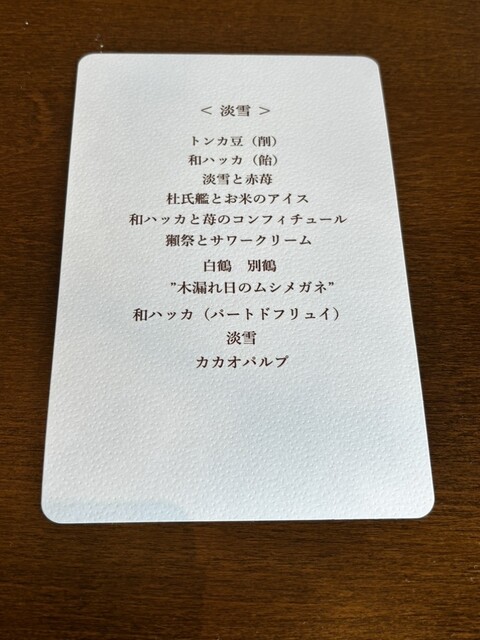 < 淡雪 >
トンカ豆（削）
和ハッカ（飴）
淡雪と赤苺
杜氏艦とお米のアイス
和ハッカと苺のコンフィチュール
獺祭とサワークリーム
白鶴　別鶴
”木漏れ日のムシメガネ”
和ハッカ（パートドフリュイ）
淡雪
カカオパルプ